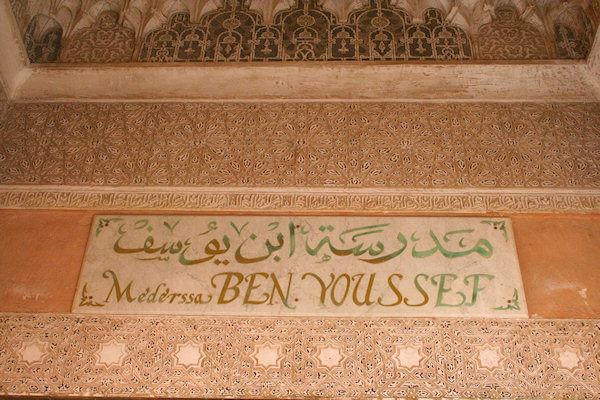 مدرسة ابن يوُسف
Médérssa BEN. YOUSSEF